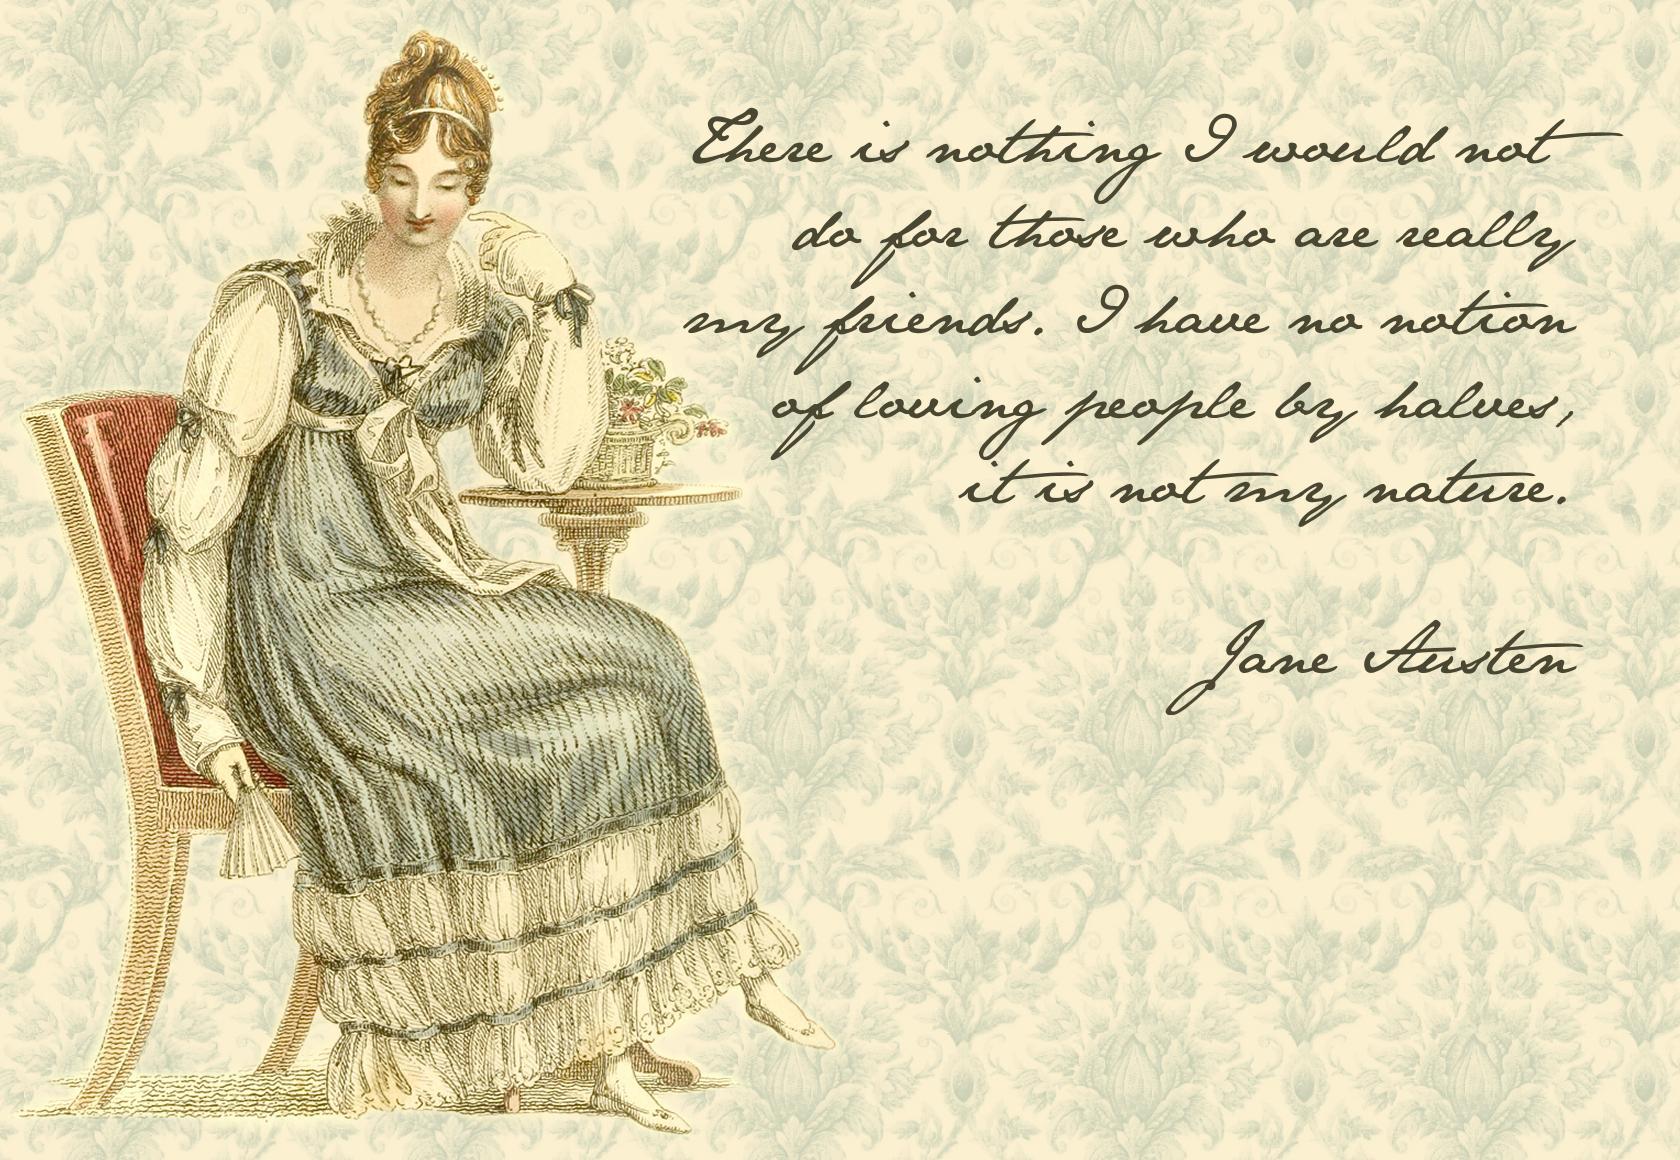 There is nothing I would not
do for those who are really
my friends. I have no notion
of loving people by halves,
it is not my nature.
Jane Austen